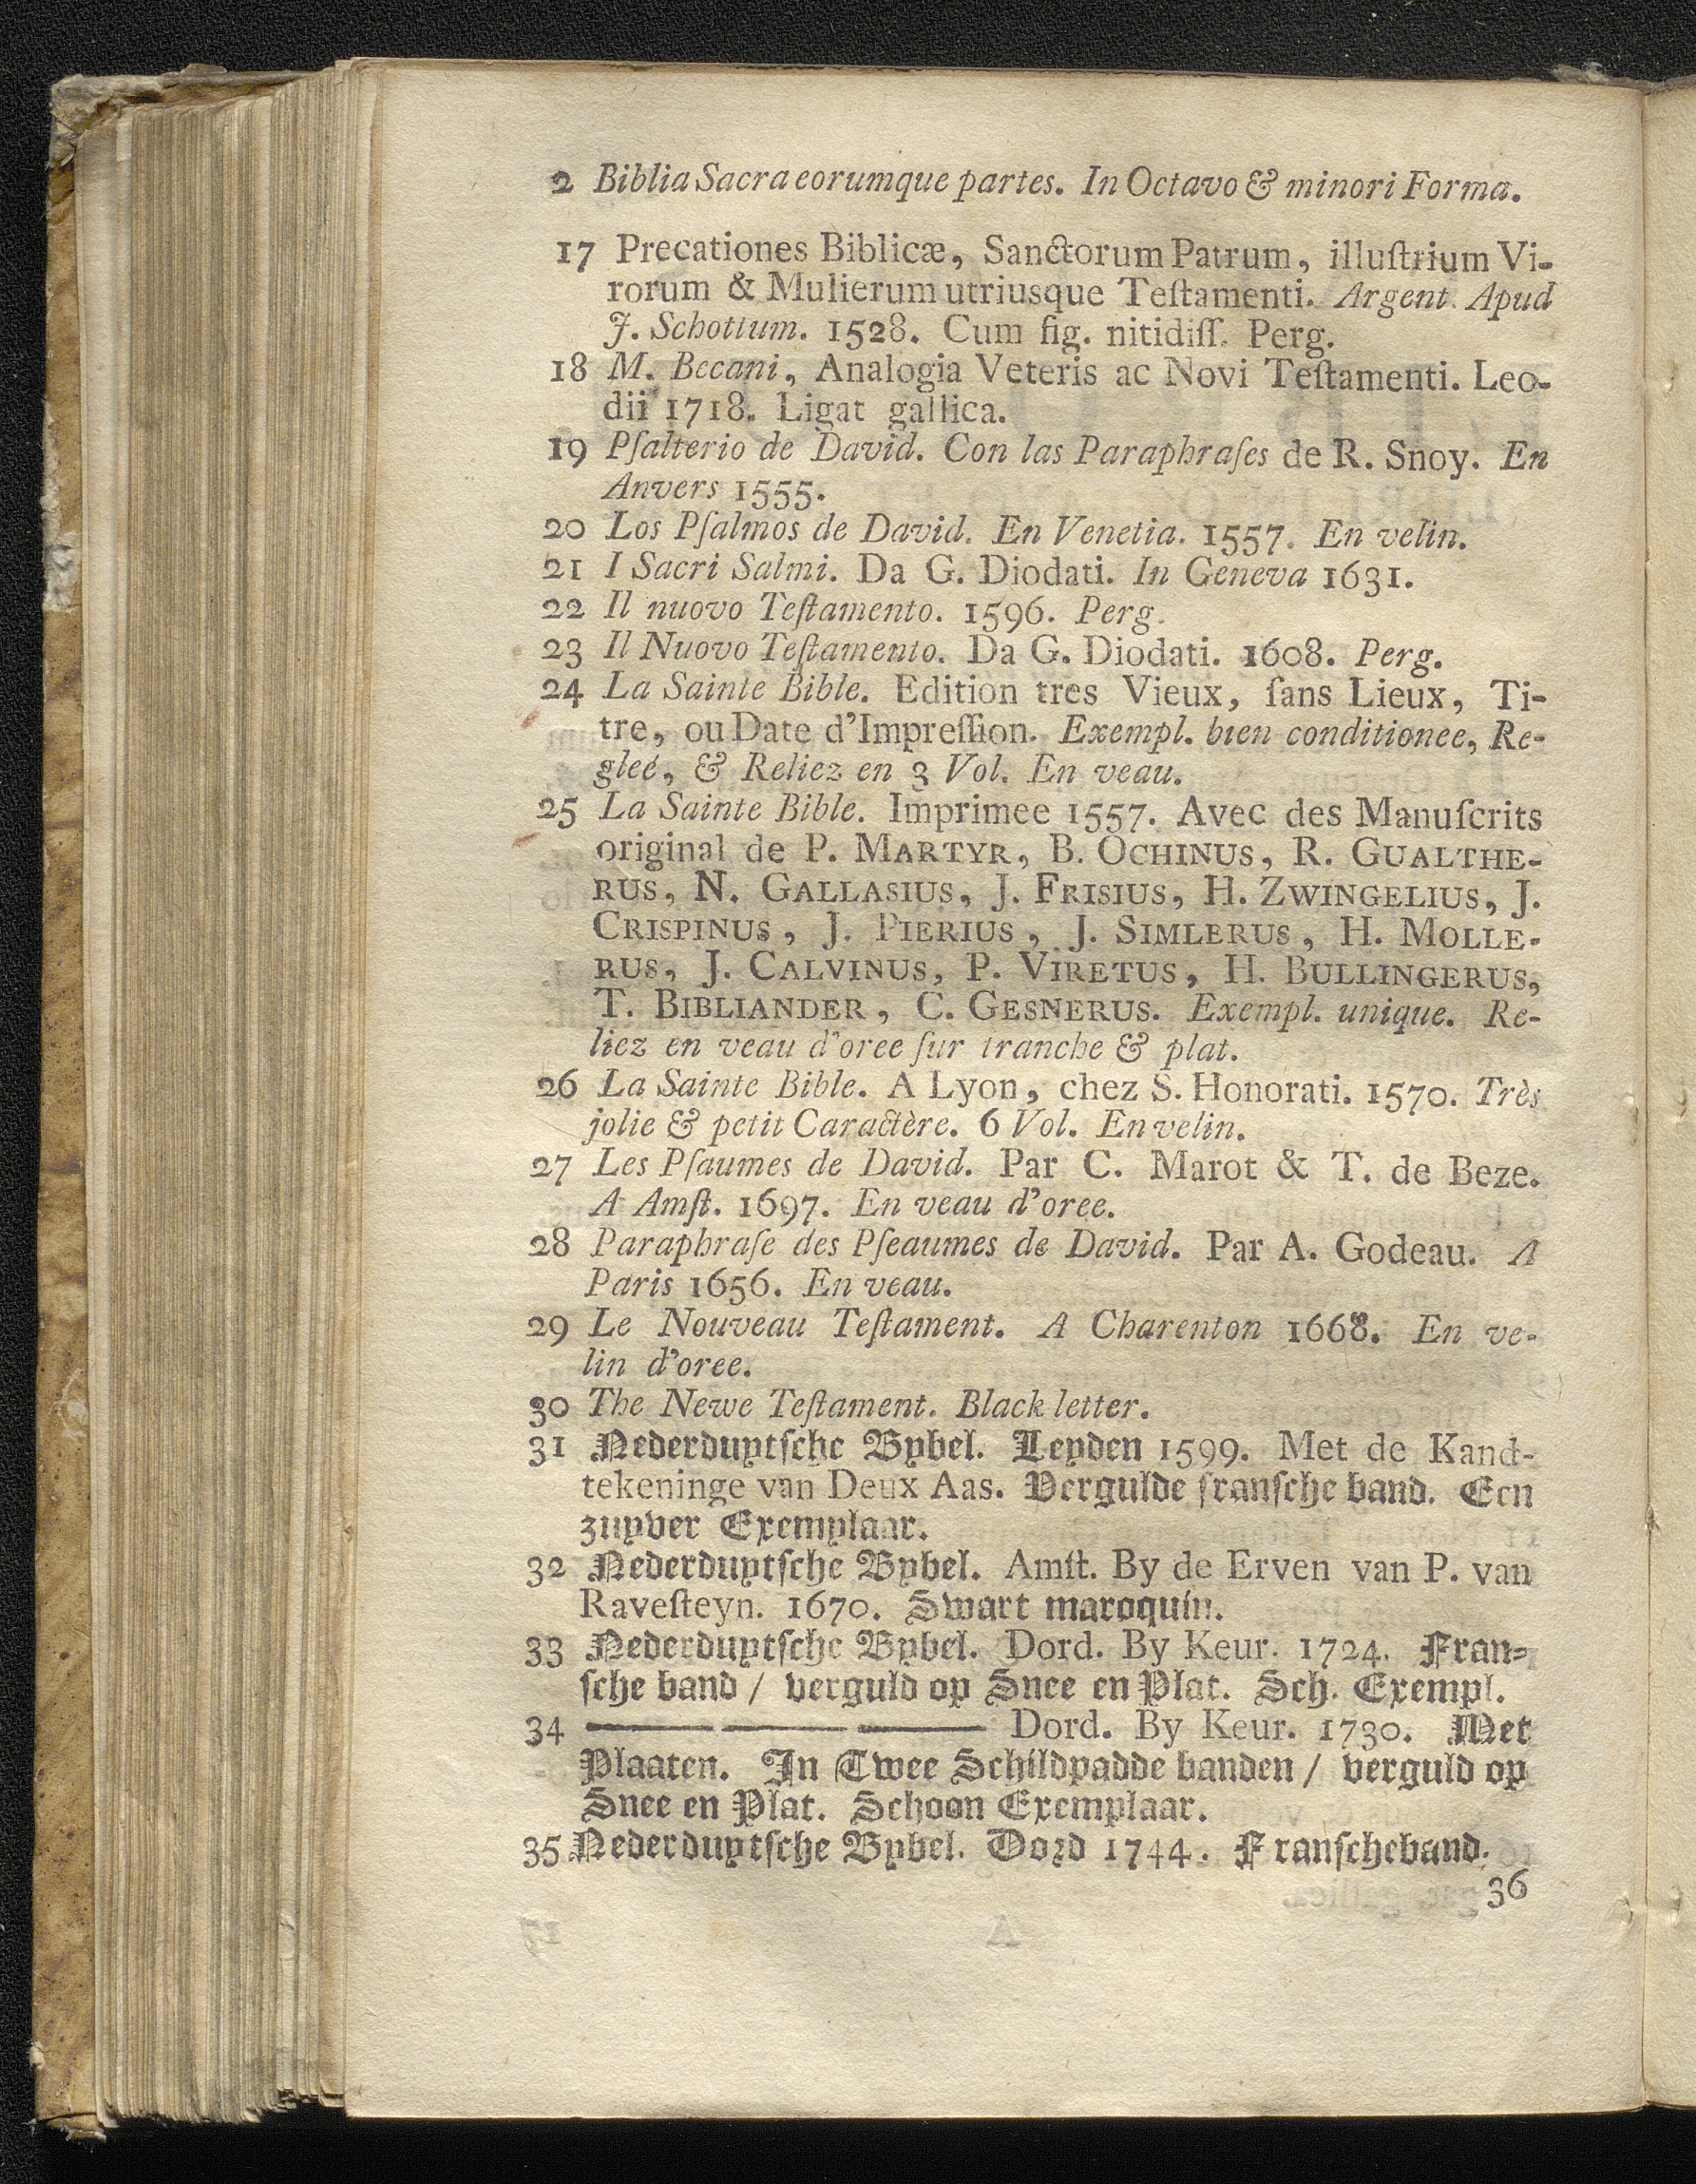 2 Biblia Sacra eorumque partes. In Octavo & minori Forma.
17 Precationes Biblicæ, Sanctorum Patrum, illuſtrium Vi-
rorum & Mulierum utriusque Teſtamenti. Argent. Apud
J. Schottum. 1528. Cum fig. nitidiſſ. Perg.
18 M. Becani, Analogia Veteris ac Novi Teſtamenti. Leo-
dii 1718. Ligat gallica.
19 Pſalterio de David. Con las Paraphraſes de R. Snoy. En
Anvers 1555.
20 Los Pſalmos de David. En Venetia. 1557. En velin.
21 I Sacri Salmi. Da G. Diodati. In Geneva 1631.
22 Il nuovo Teſtamento. 1596. Perg.
23 Il Nuovo Teſtamento. Da G. Diodati. 1608. Perg.
24 La Sainte Bible. Edition tres Vieux, ſans Lieux, Ti-
tre, ou Date d'Impreſſion. Exempl. bien conditionee, Re-
gleé, & Reliez en 3 Vol. En veau.
25 La Sainte Bible. Imprimee 1557. Avec des Manuſcrits
original de P. MARTYR, B. OCHINUS, R. GUALTHE-
RUS, N. GALLASIUS, J. FRISIUS, H. ZWINGELIUS, J.
CRISPINUS, J. PIERIUS, J. SIMLERUS, H. MOLLE-
RUS, J. CALVINUS, P. VIRETUS, H. BULLINGERUS,
T. BIBLIANDER, C. GESNERUS. Exempl. unique. Re-
liez en veau d'oree ſur tranche & plat.
26 La Sainte Bible. A Lyon, chez S. Honorati. 1570. Très
jolie & petit Caractère. 6 Vol. En velin.
27 Les Pſaumes de David. Par C. Marot & T. de Beze.
A Amſt. 1697. En veau d'oree.
28 Paraphraſe des Pſeaumes de David. Par A. Godeau. A
Paris 1656. En veau.
29 Le Nouveau Teſtament. A Charenton 1668. En ve-
lin d'oree.
30 The Newe Teſtament. Black letter.
31 Nederduytſche Bybel. Leyden 1599. Met de Kand-
tekeninge van Deux Aas. Vergulde franſche band. Een
zuyver Exemplaar.
32 Nederduytſche Bybel. Amſt. By de Erven van P. van
Raveſteyn. 1670. Swart maroquin.
33 Nederduytſche Bybel. Dord. By Keur. 1724. Fran-
ſche band / verguld op Snee en Plat. Sch. Exempl.
34 ——— ——— ——— Dord. By Keur. 1730. Met
Plaaten. In Twee Schildpadde banden / verguld op
Snee en Plat. Schoon Exemplaar.
35 Nederduytſche Bybel. Dord 1744. Franſcheband.
36